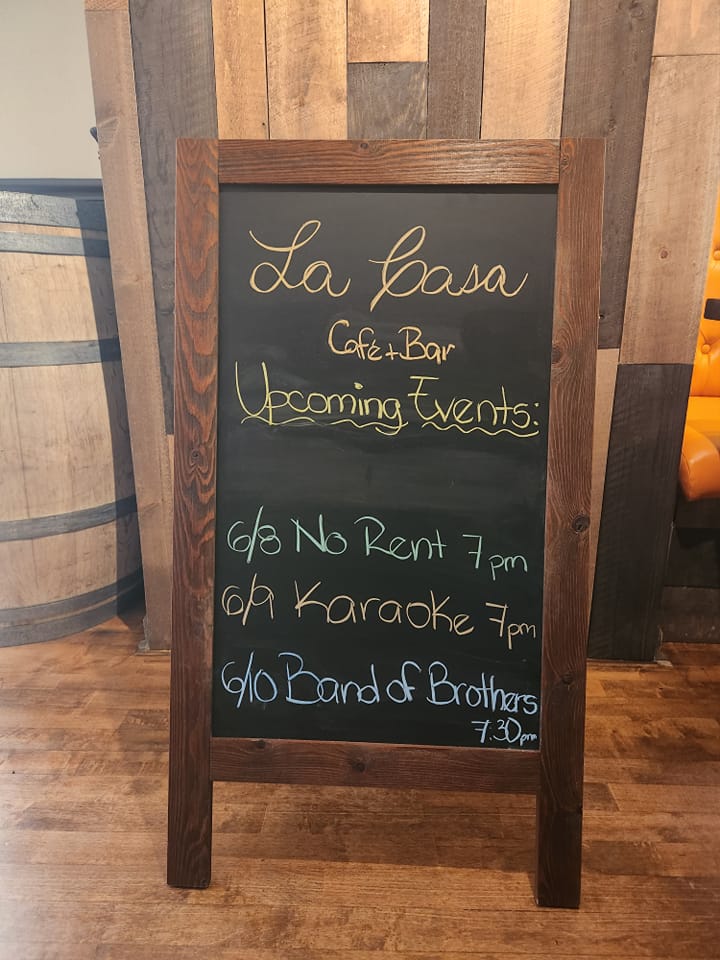 La Casa
Café + Bar
Upcoming Events:
6/8 No Rent 7pm
6/9 Karaoke 7pm
6/10 Band of Brothers
7:30pm